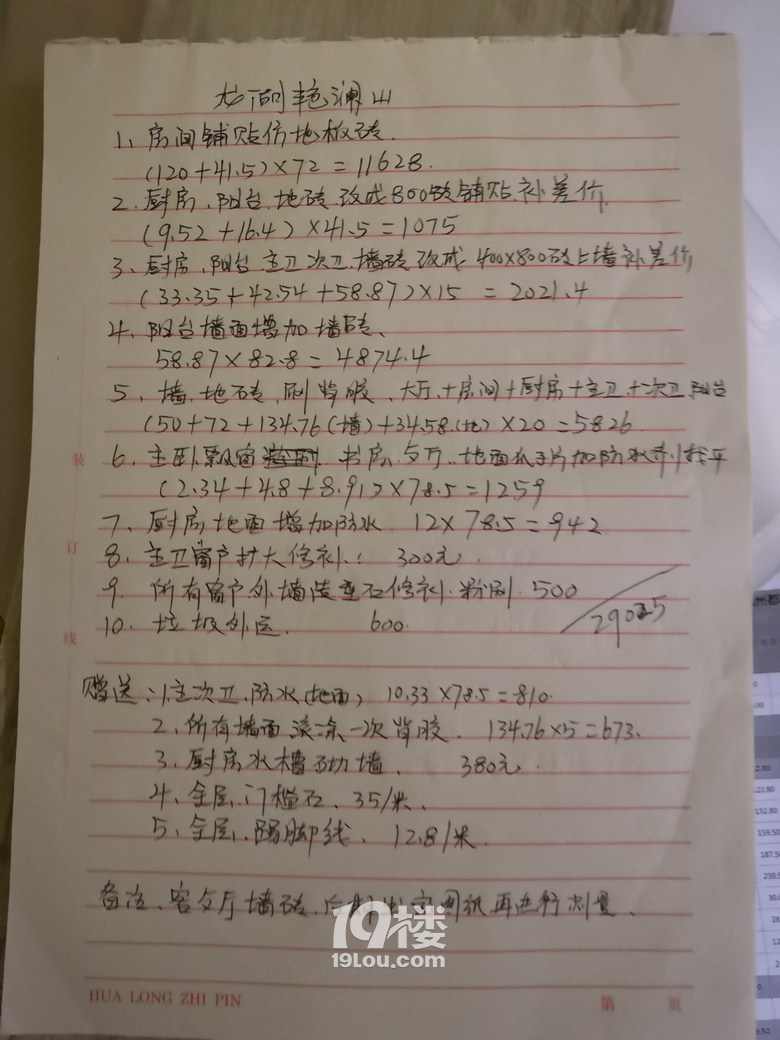 艳澜山
1、房间铺贴仿地板砖.
(120+41.5)×72=11628.
2、厨房、阳台、地砖改成800砖铺贴.补差价
(9.52+16.4)×41.5=1075
3、厨房、阳台、主卫次卫、墙砖改成400×800砖上墙补差价
(33.35+42.54+58.87)×15=2021.4
4、阳台墙面增加墙砖、
58.87×82.8=4874.4
5、墙、地石砖、刷背胶、大厅、+房间+厨房+主卫+次卫、阳台
(50+72+134.76(墙)+34.58(地)×20=5826
6、主卧飘窗 书房、 厅、地面 加防水 找平
(2.34+4.8+8.91)×78.5=1259
7、厨房地面增加防水 12×78.5=942
8、主卫窗户扩大修补: 300元.
9、所有窗户外墙 石修补.粉刷.500
10、垃圾外运. 600.
29025
赠送:1、主次卫、防水(地面) 10.33×78.5=810.
2、所有墙面滚涂一次背胶. 134.76×5=673.
3、厨房水槽砌墙. 380元.
4、全屋、门槛石、35/米、
5、全屋、踢脚线、12.8/米.
备注、客 厅墙砖、 图纸再进行测量.
19楼
19lou.com
HUA LONG ZHI PIN
第 页
装
订
线
122.80
152.80
159.50
187.5